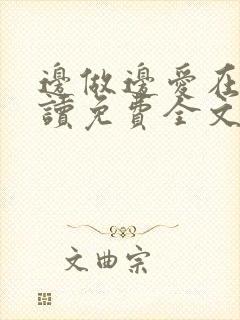 邊做邊愛在
讀免費全文
文曲宗